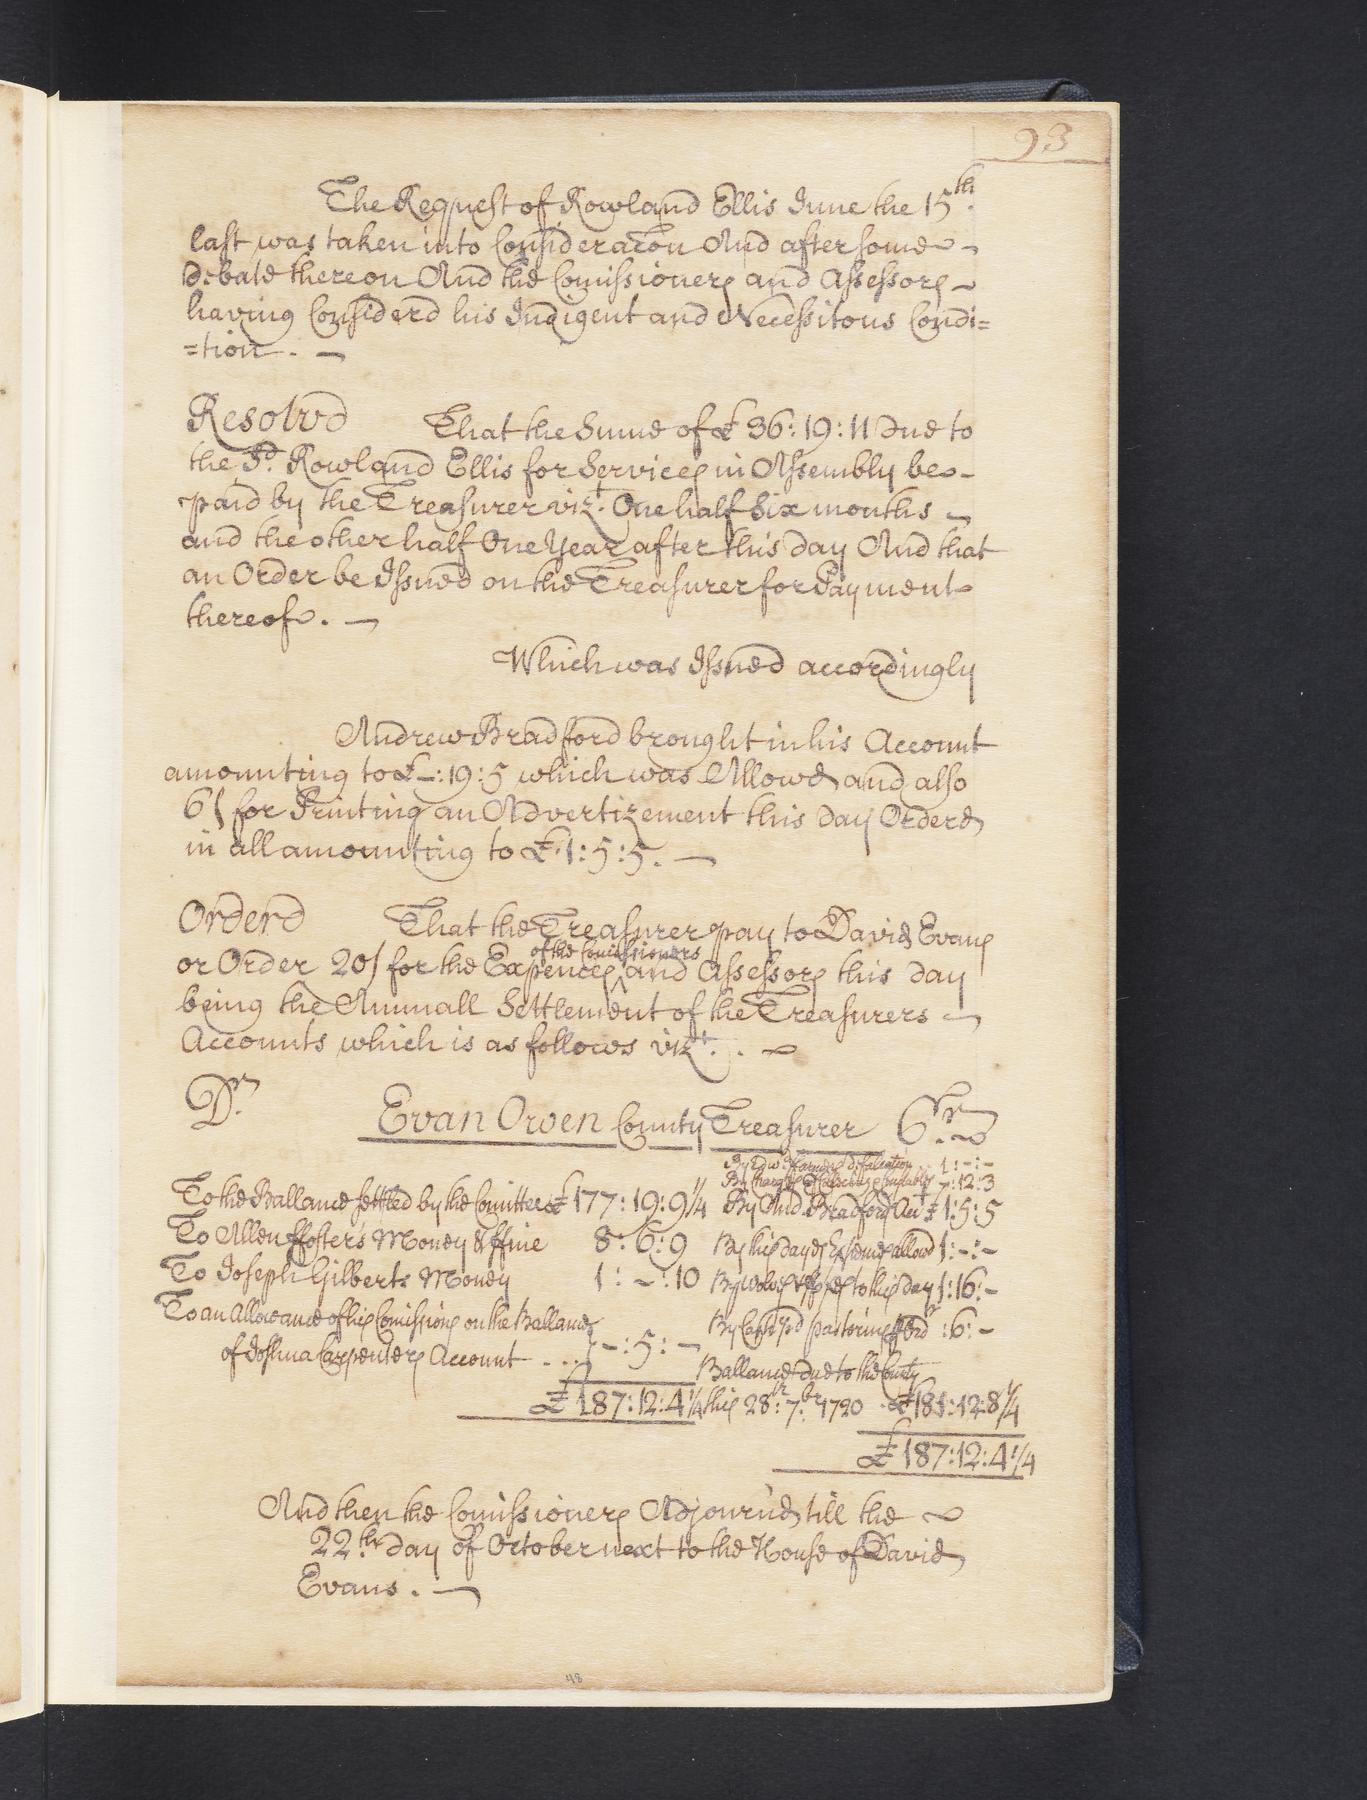 93
The Request of Rowland Ellis June the 15th
last was taken into Consideracon And after some
Debate thereon And the Comissioners and Assessors
having Considerd his Indigent and Necessitous Condi=
=tion. —
Resolvd That the Sume of £ 36:19:11 Due to
the Sd. Rowland Ellis for Services in Assembly be
paid by the Treasurer vizt. One half Six months
and the other half One Year after this day And that
an Order be Issued on the Treasurer for Payment
thereof. —
Which was Issued accordingly
Andrew Bradford brought in his Account
amounting to £ -:19:5 which was Allowd and also
6/ for Printing an Advertizement this day Orderd
in all amounting to £ 1:5:5. —
Orderd That the Treasurer pay to David Evans
of the Comissioners
or Order 20/ for the Expences ^ and Assessors this day
being the Annuall Settlement of the Treasurers
Accounts which is as follows vizt. . ~
Dr. Evan Owen County Treasurer Cr.
By Edwd. Defalcation 1:-:-
By Charges 7:12:3
To the Ballance settled by the Comittee £ 177:19:9 1/4 By And. Bradford Acct £ 1:5:5
To Allen ffoster's Money & ffine 8:6:9 By this days Expence allowd 1:-:-
To Joseph Gilberts Money 1:-:10 By wolves & ffoxes to this day 1:16:-
To an Allowance of his Comissions on the Ballance By Cash pd :6:-
of Joshua Carpenters Account ... -:5:- Ballance due to the County
£ 187:12:4 1/4 this 28th. 7br. 1720 £ 181:12:8 1/4
£ 187:12:4 1/4
And then the Comissioners Adjourn'd till the
22th. day of October next to the House of David
Evans. —
48